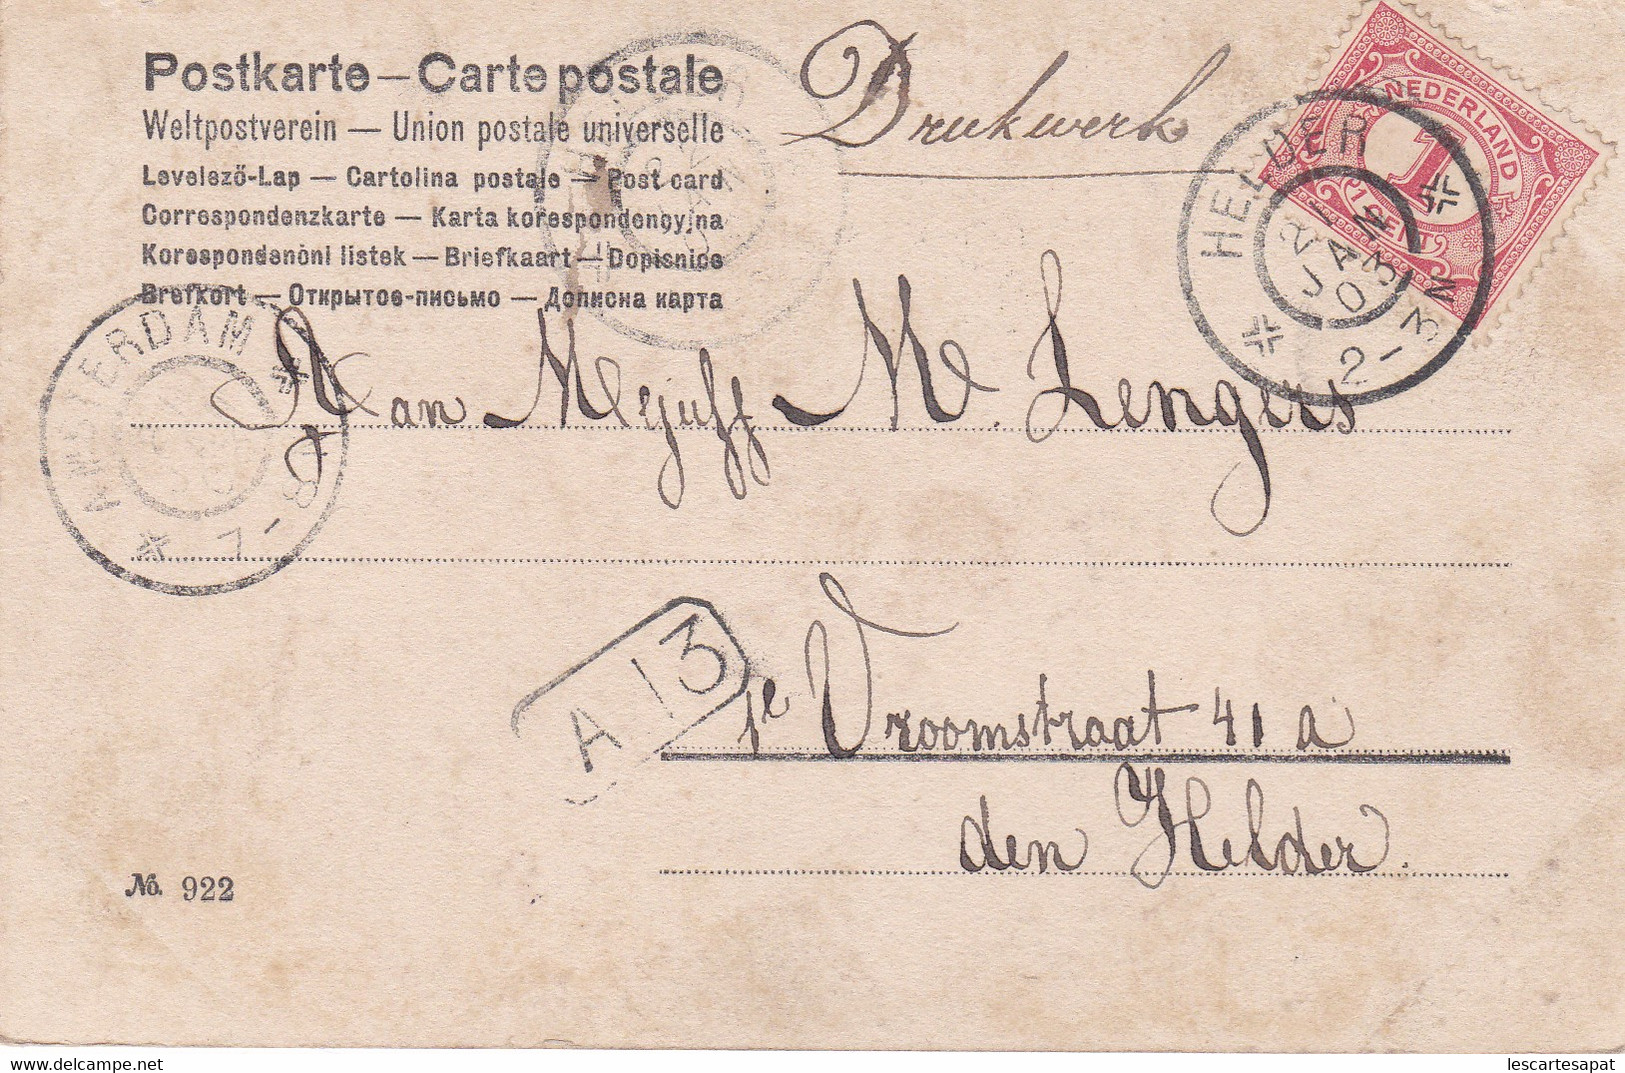 Postkarte — Carte postale
Weltpostverein — Union postale universelle
Levelező-Lap — Cartolina postale — Post card
Correspondenzkarte — Karta korespondencyjna
Korespondenční lístek — Briefkaart — Dopisnice
Brefkort — Открытое-письмо — Дописна карта
Drukwerk
NEDERLAND
1
1 CENT
HELDER
2 JAN 03
2-3 N
AMSTERDAM
7-8
Aan Mejuff M. Lengers
A 13
1e Vroomstraat 41 a
den Helder.
No. 922
delcampe.net
lescartesapat